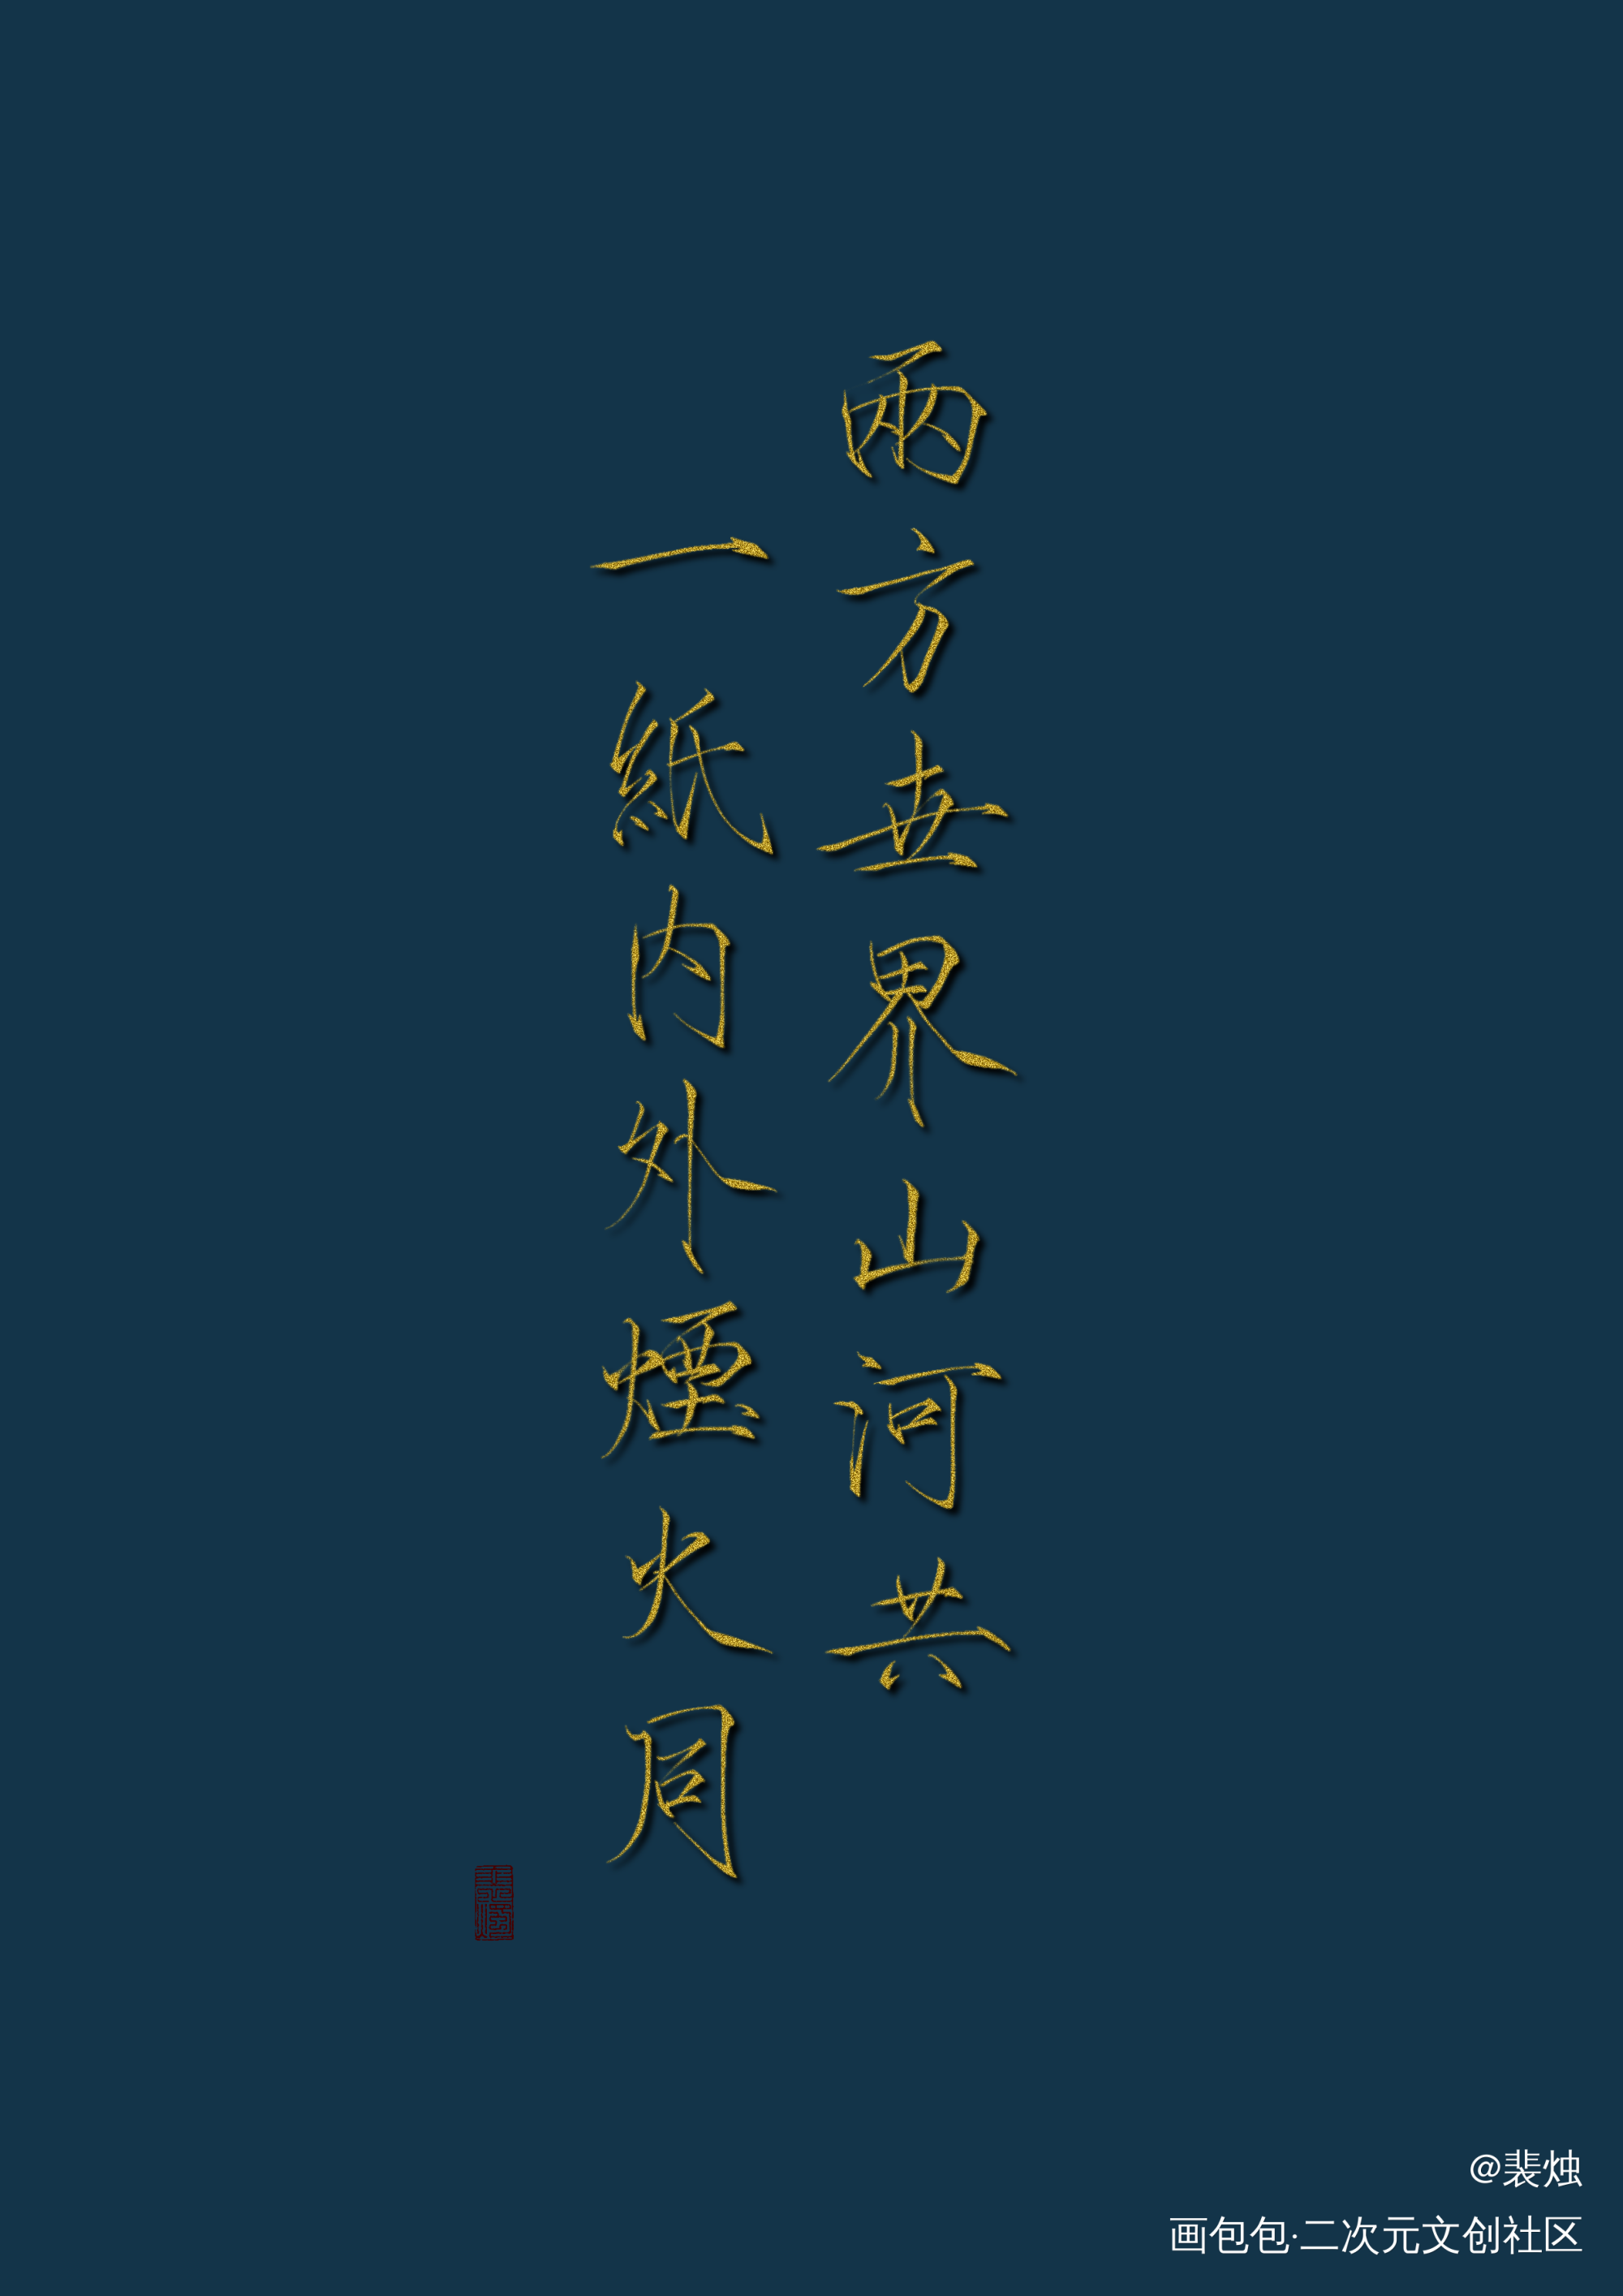 兩方世界山河共
一紙内外煙火同
@裴烛
画包包·二次元文创社区